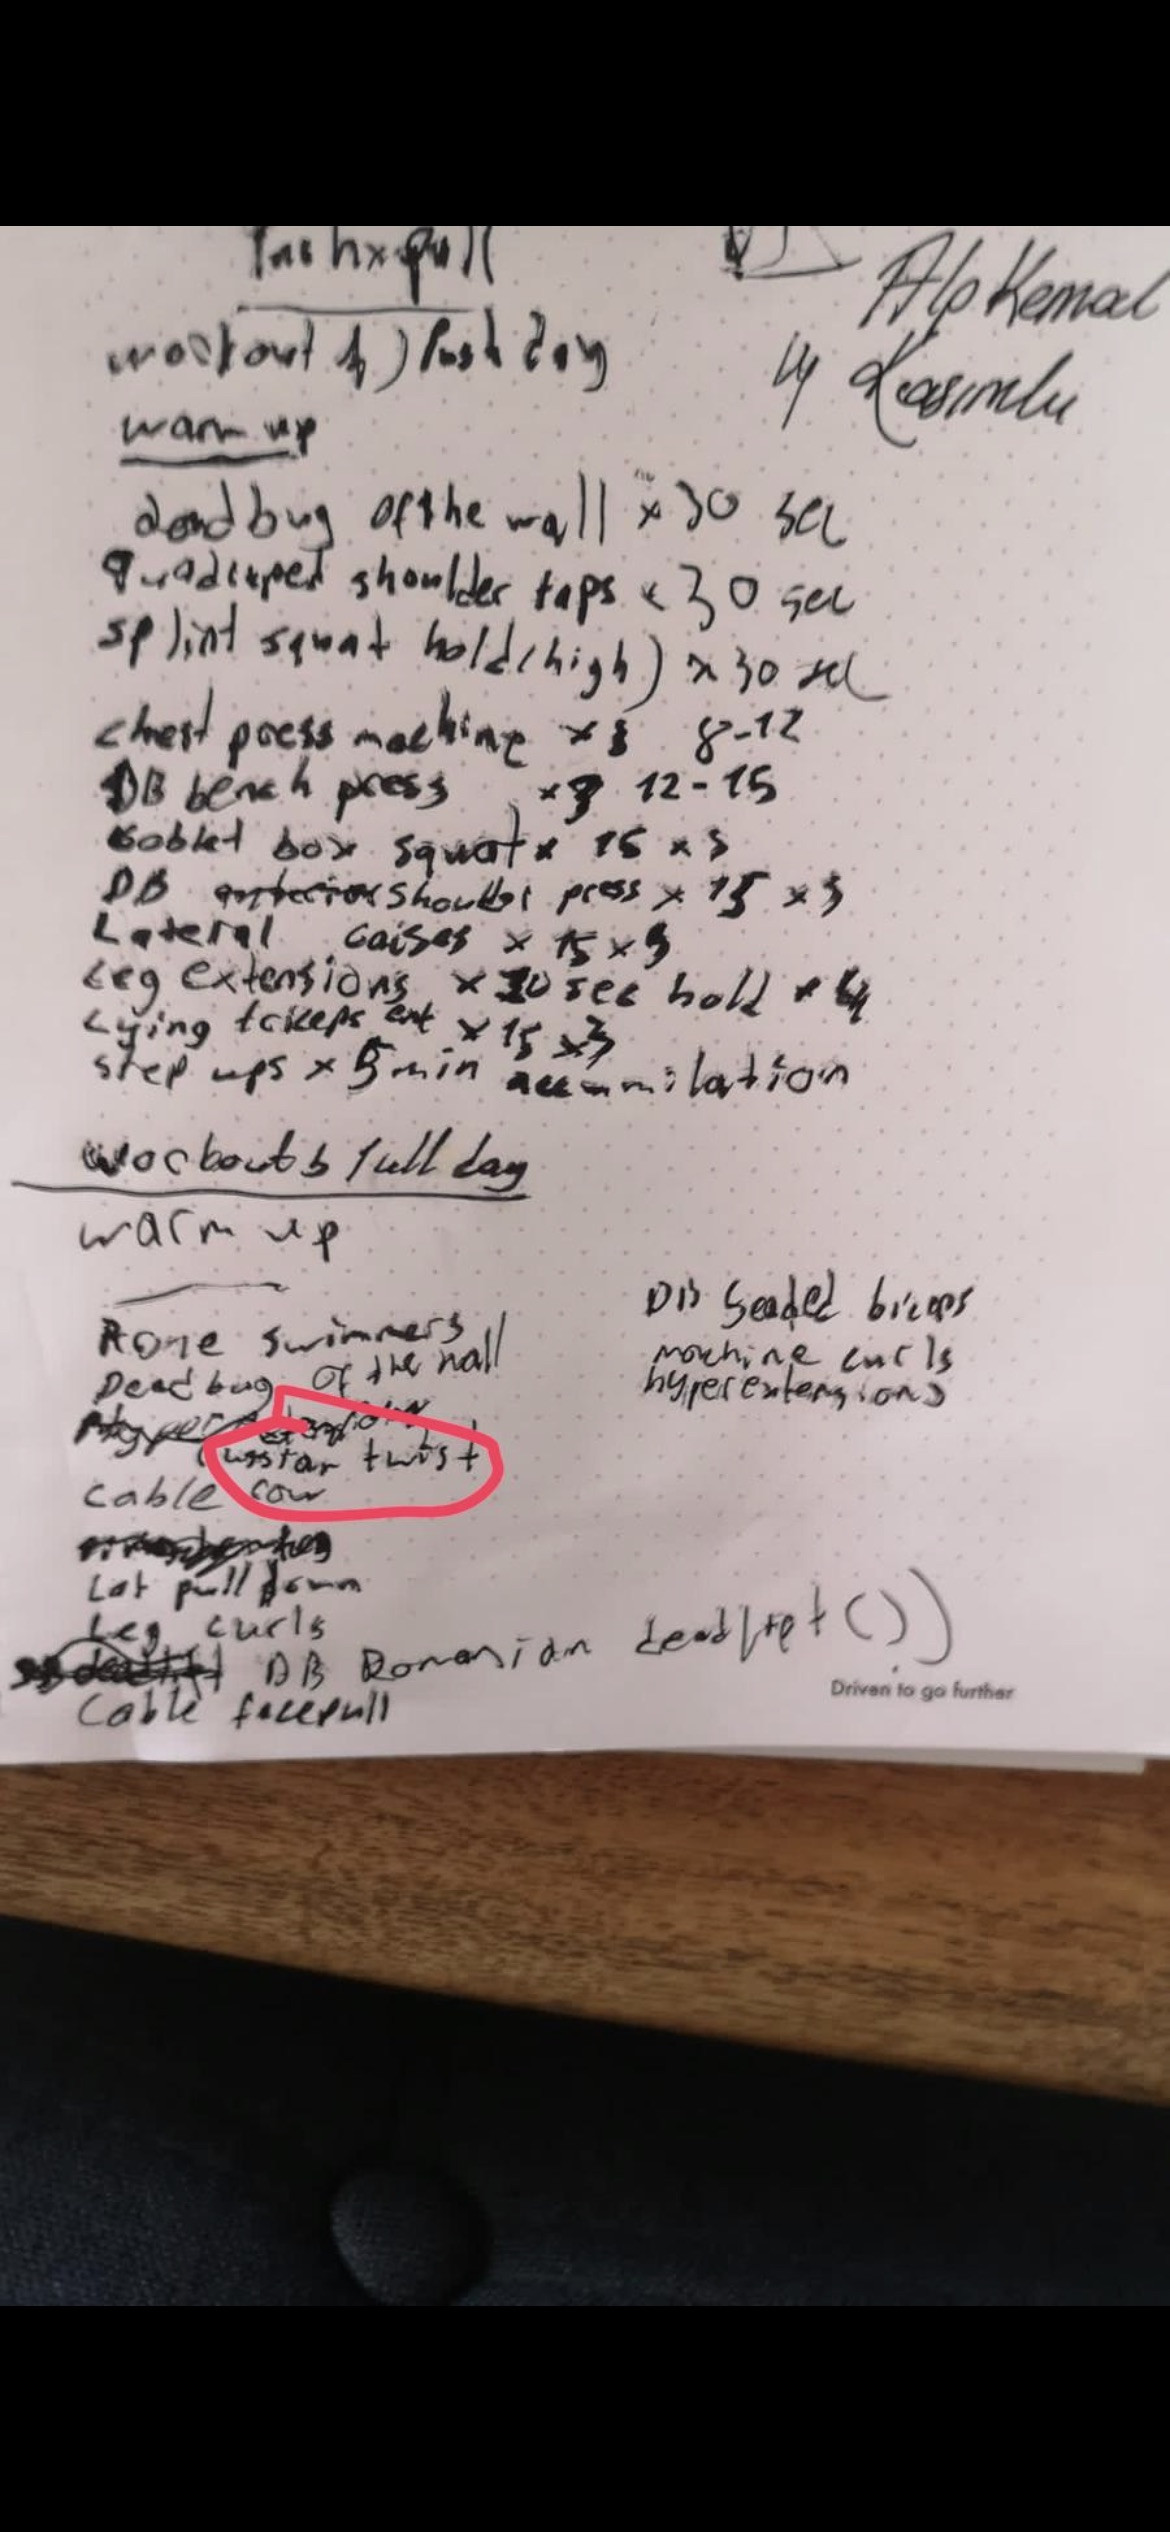 Push x pull
Alp Kemal
by Kasımlu
workout A) Push day
warm up
dead bug of the wall x 30 sec
quadruped shoulder taps x 30 sec
splint squat hold (high) x 30 sec
chest press machine x 3 8-12
DB bench press x 3 12-15
Goblet box squat x 15 x 3
DB shoulder press x 15 x 3
Lateral raises x 15 x 3
Leg extensions x 30 sec hold x 4
Lying triceps ext x 15 x 3
step ups x 5 min accumilation
workout b full day
warm up
swimmers
Dead bug of the wall
twist
Cable row
Lat pull down
Leg curls
DB Romanian
Cable facepull
DB Seaded biceps
machine curls
hyperextensions
Driven to go further